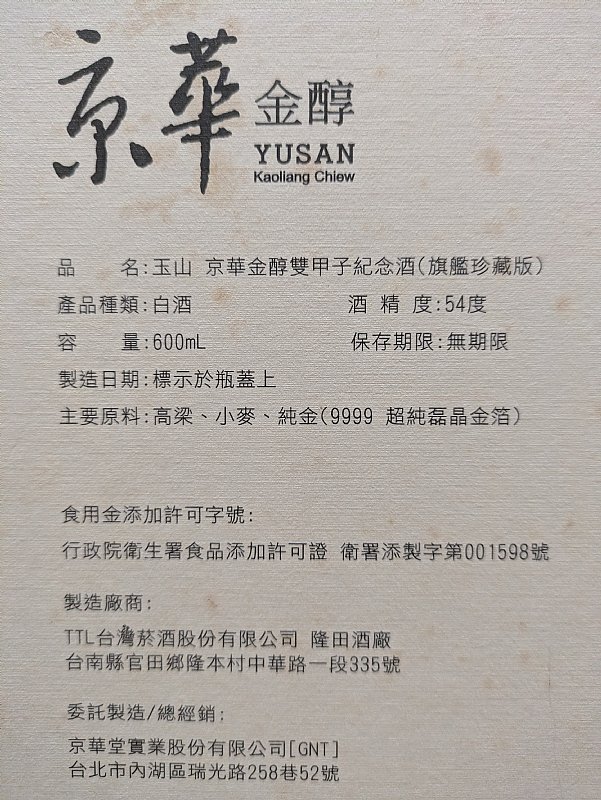 京華 金醇
YUSAN
Kaoliang Chiew
品　　名:玉山 京華金醇雙甲子紀念酒(旗艦珍藏版)
產品種類:白酒　　酒 精 度:54度
容　　量:600mL　　保存期限:無期限
製造日期:標示於瓶蓋上
主要原料:高梁、小麥、純金(9999 超純磊晶金箔)
食用金添加許可字號:
行政院衛生署食品添加許可證 衛署添製字第001598號
製造廠商:
TTL台灣菸酒股份有限公司 隆田酒廠
台南縣官田鄉隆本村中華路一段335號
委託製造/總經銷:
京華堂實業股份有限公司[GNT]
台北市內湖區瑞光路258巷52號